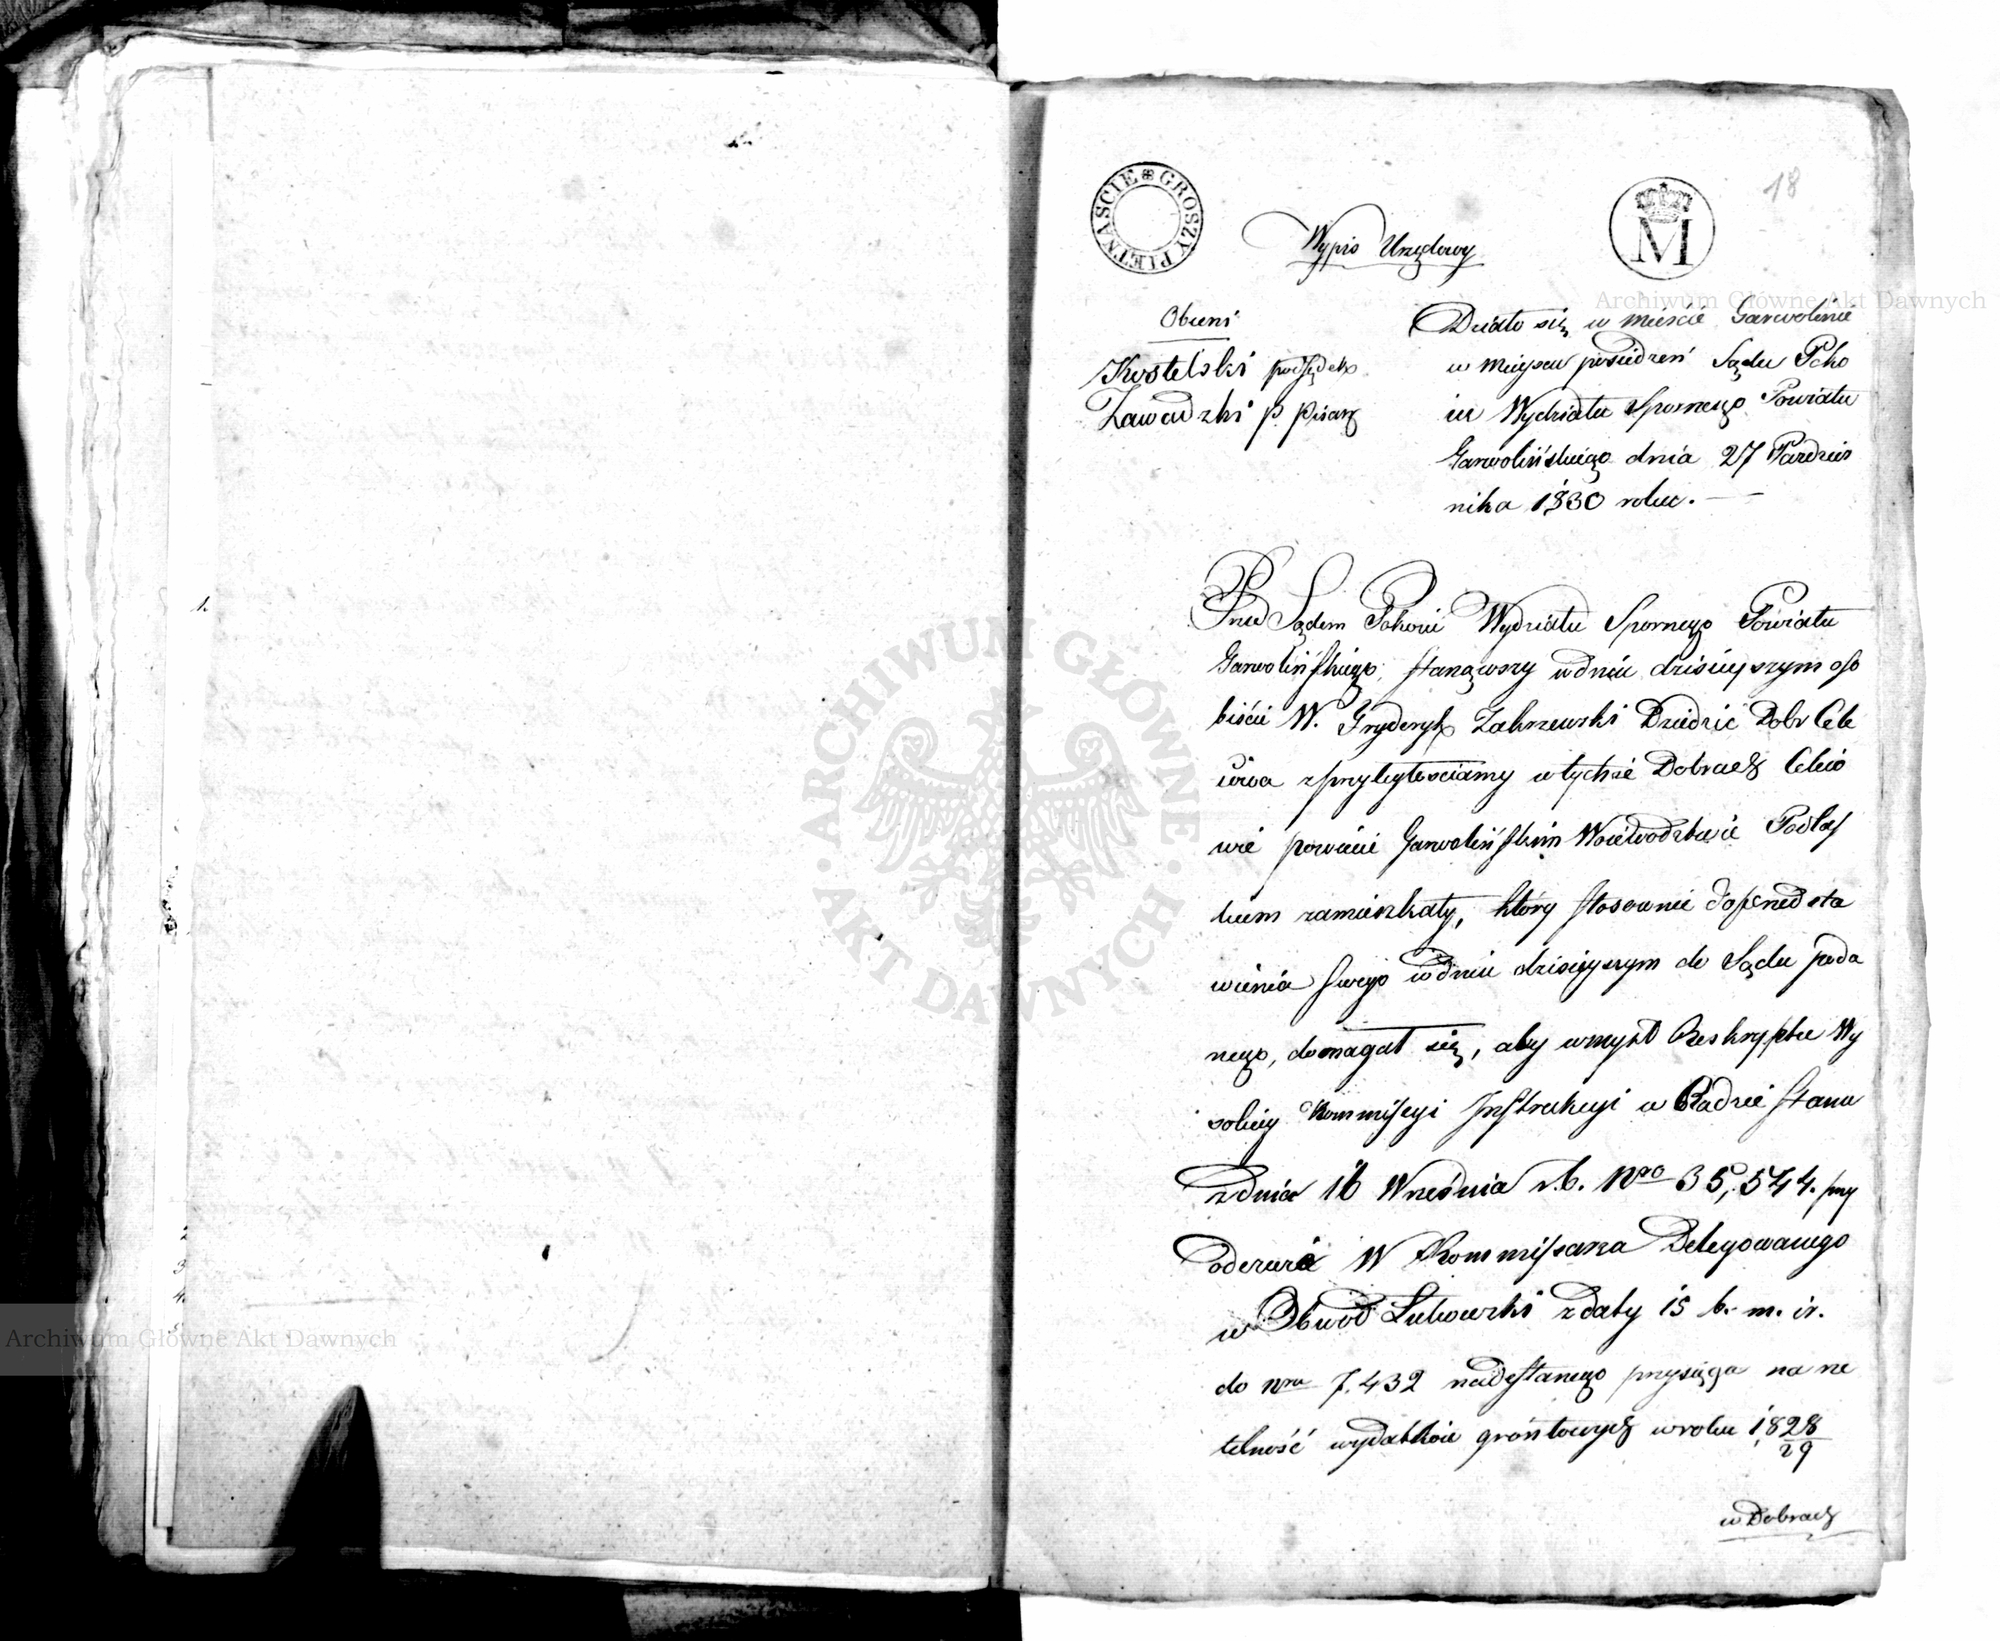 18
GROSZY PIĘTNAŚCIE
M
Wypis Urzędowy
Obecni
Kostelski podsędek
Zawadzki p. Pisarz
Działo się w mieście Garwolinie
w miejscu posiedzeń Sądu Pcko
iu Wydziału Spornego Powiatu
Garwolińskiego dnia 27 Paździer
nika 1830 roku. —
Przed Sądem Pokoiu Wydziału Spornego Powiatu
Garwolińskiego, stanąwszy w dniu dzisieyszym oso
biście W. Fryderyk Zakrzewski Dziedzic Dobr Cele
iowa z przyległościamy w tychże Dobrach Celeio
wie powiecie Garwolińskim Woiewodztwie Podlas
kiem zamieszkały, który stosownie do przedsta
wienia swego w dniu dzisieyszym do Sądu poda
nego, domagał się, aby w myśl Reskryptu Wy
sokiey Kommissyi Instrukcyi w Radzie Stanu
z dnia 16 Września r. b. Nro 35,544. przy
odezwie W Kommissarza Delegowanego
w Obwód Łukowski z daty 15 b. m. ir.
do Nru 7.432 nadesłanego przysięga na rze
telność wydatków gróntowych w roku 1828/29
w Dobrach
1.
2
3
4.
ARCHIWUM GŁÓWNE AKT DAWNYCH
Archiwum Główne Akt Dawnych
Archiwum Główne Akt Dawnych